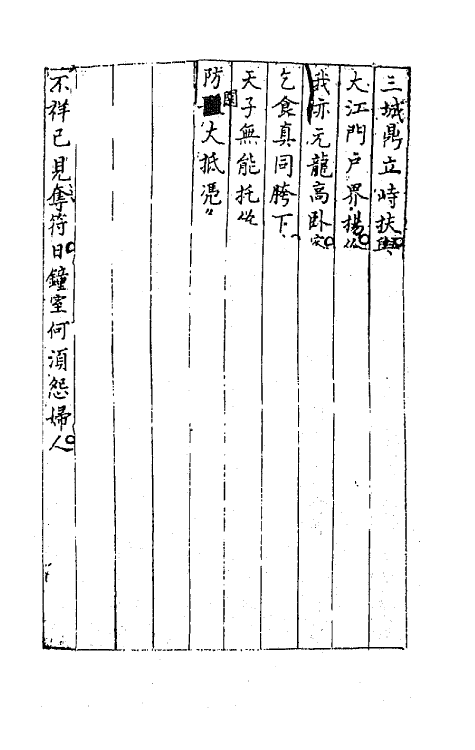 三城鼎立峙扶輿
大江門戶界揚
我亦元龍高臥客
乞食真同胯下
天子無能托
防大抵憑
不祥已見奪符日鐘室何須怨婦人